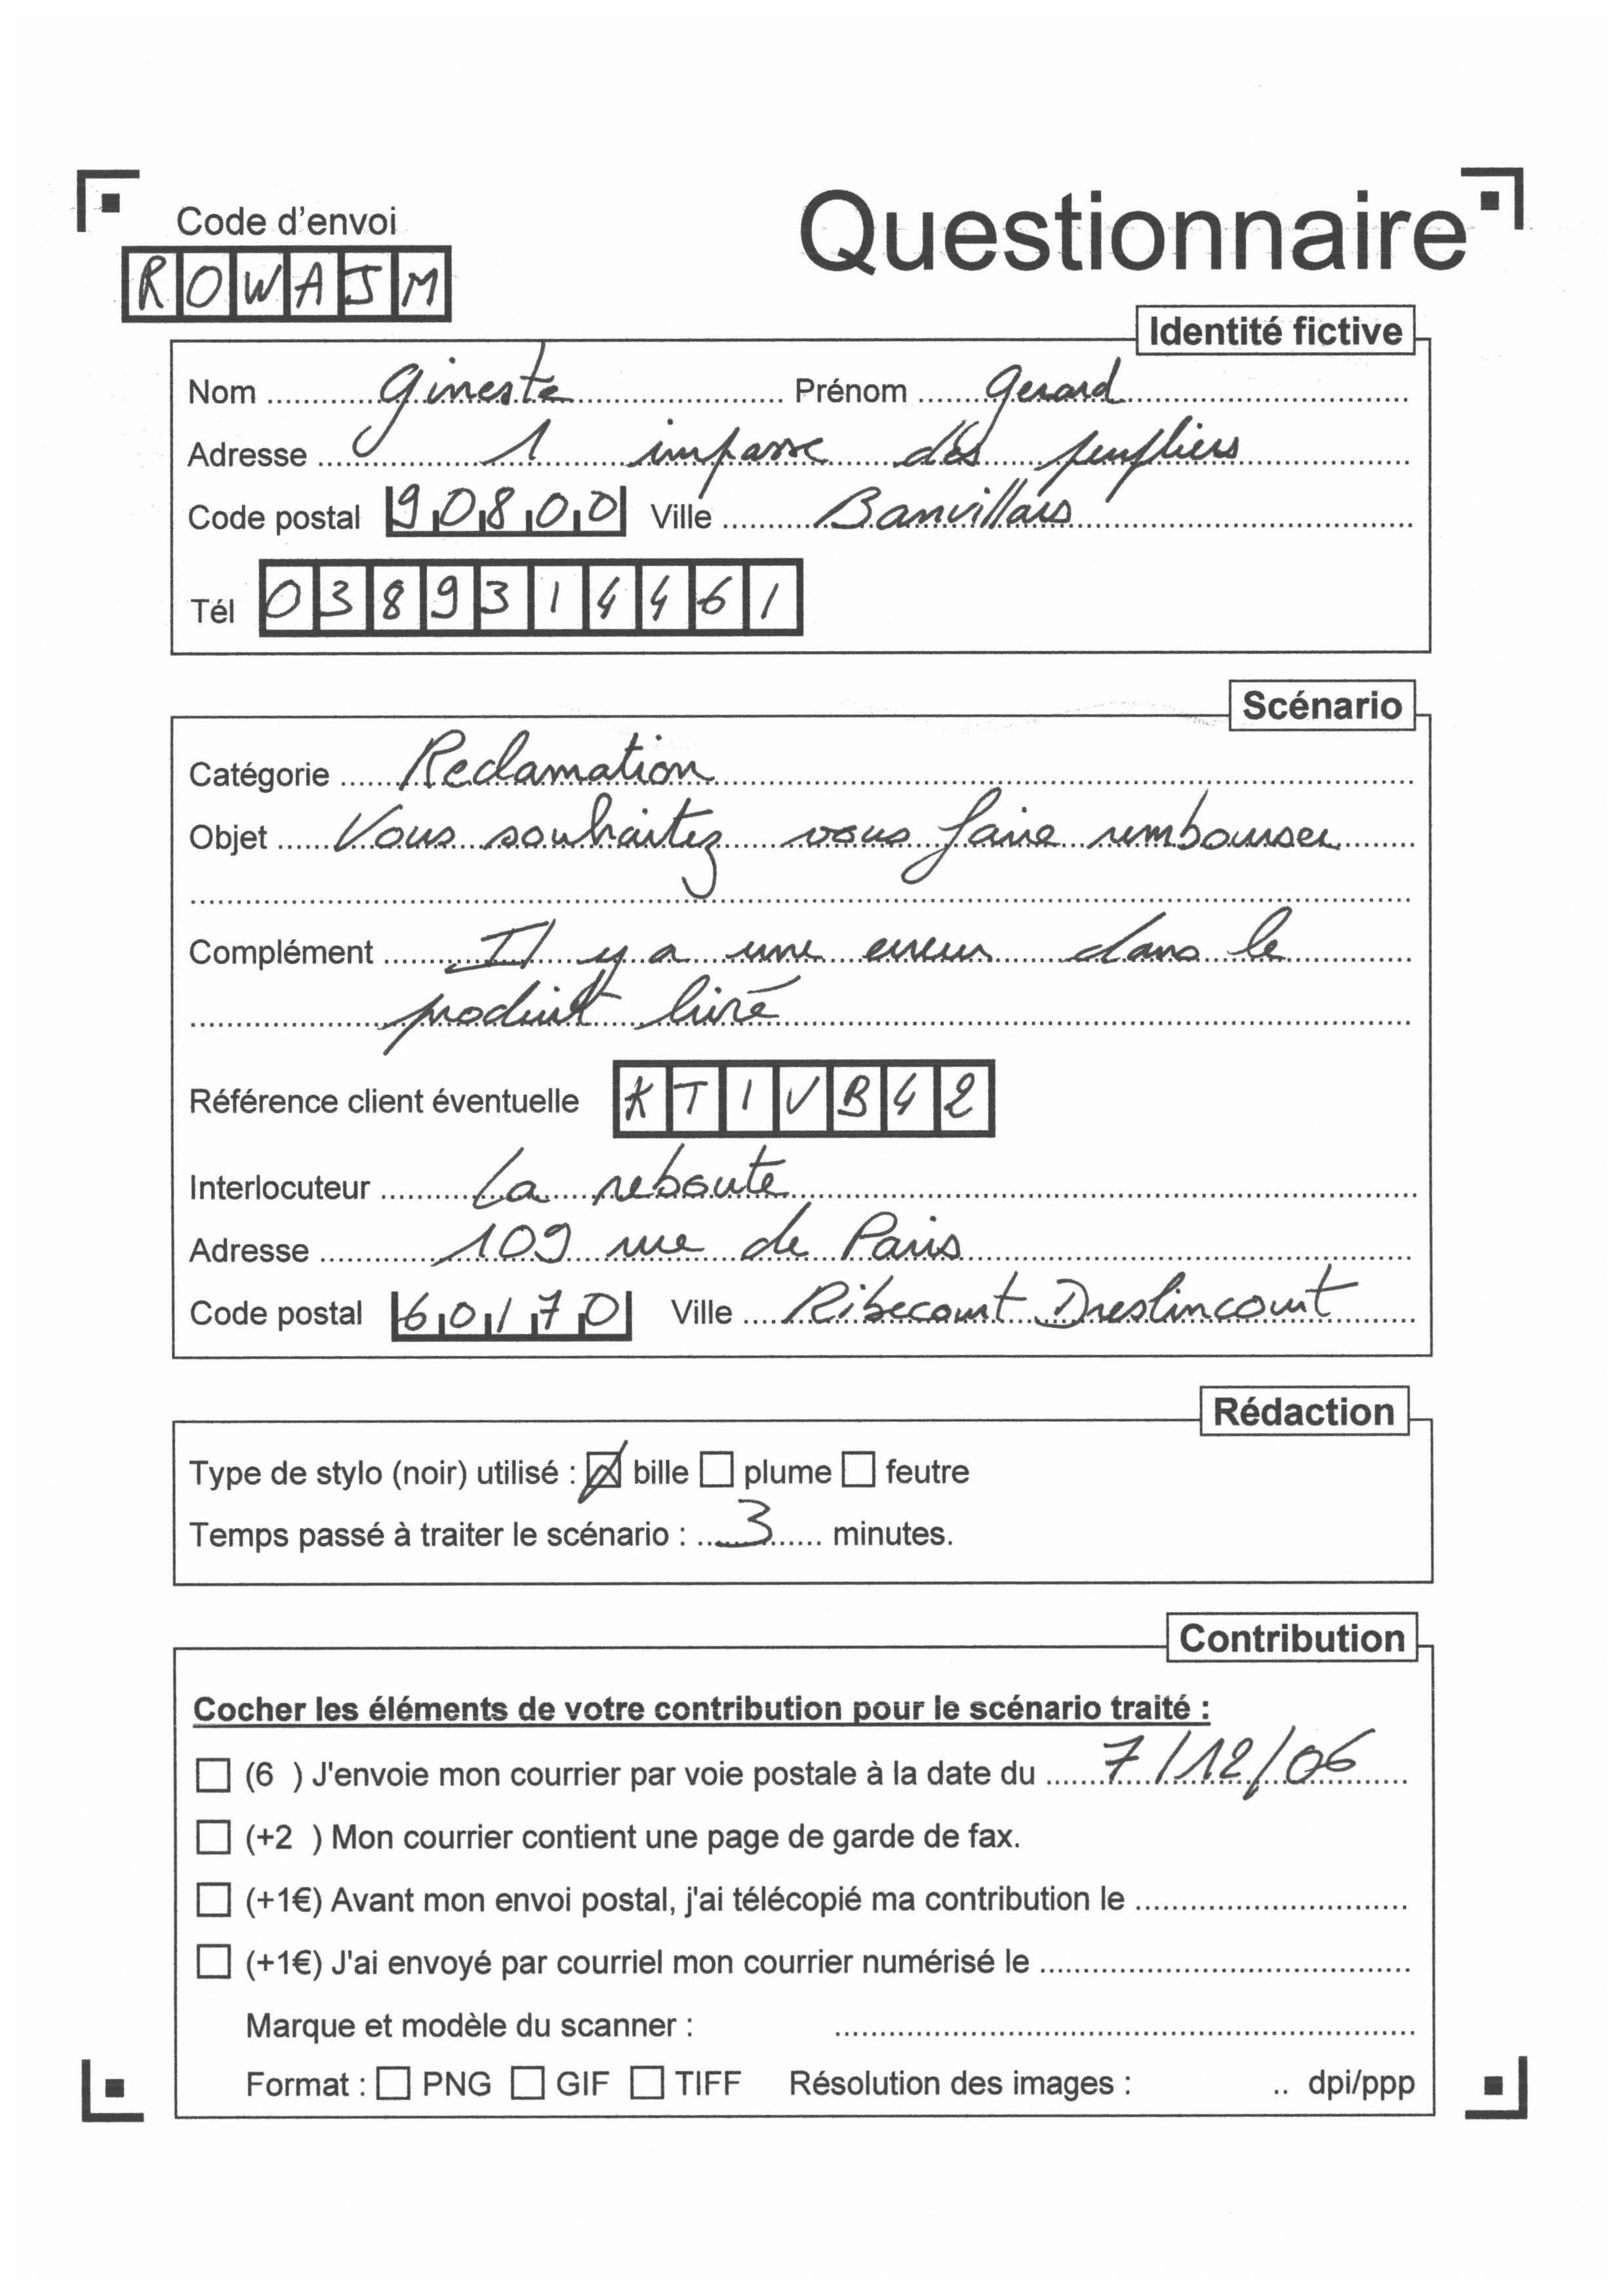 Code d'envoi
Questionnaire
ROWAJM
Identité fictive
Nom Gineste Prénom Gerard
Adresse 1 impasse des peupliers
Code postal 90800 Ville Banvillars
Tél 0389314461
Scénario
Catégorie Reclamation
Objet Vous souhaitez vous faire rembourser
Complément Il y a une erreur dans le
produit livré
Référence client éventuelle KTIVB42
Interlocuteur La reboute
Adresse 109 rue de Paris
Code postal 60170 Ville Ribecourt Dreslincourt
Rédaction
Type de stylo (noir) utilisé : bille plume feutre
Temps passé à traiter le scénario : 3 minutes.
Contribution
Cocher les éléments de votre contribution pour le scénario traité :
(6 ) J'envoie mon courrier par voie postale à la date du 7/12/06
(+2 ) Mon courrier contient une page de garde de fax.
(+1€) Avant mon envoi postal, j'ai télécopié ma contribution le
(+1€) J'ai envoyé par courriel mon courrier numérisé le
Marque et modèle du scanner :
Format : PNG GIF TIFF Résolution des images : .. dpi/ppp